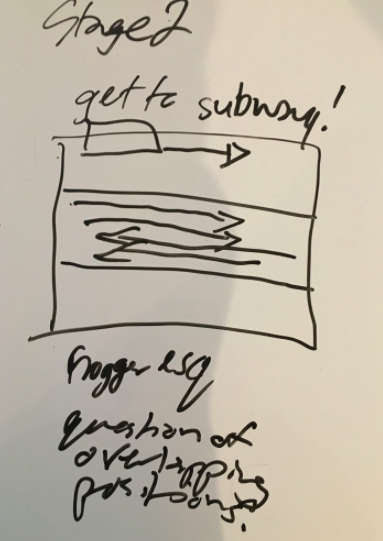 Stage 2
get to subway!
frogger esq
question of
overlapping
positions?